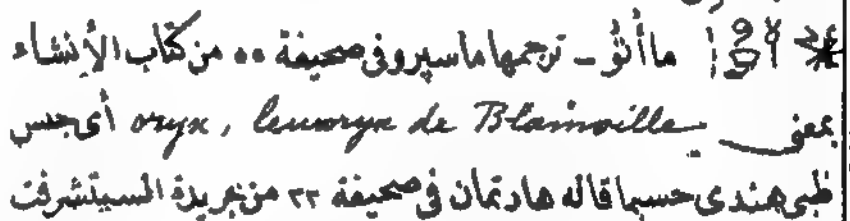 ماأثو ـ ترجمها ماسپرو فى صحيفة ٥٥ من كتاب الأنشاء
بمعنى oryx, leucoryx de Blainville أى جنس
ظبى هندى حسبما قاله هارتمان فى صحيفة ٢٣ من جريدة السيتشرفت